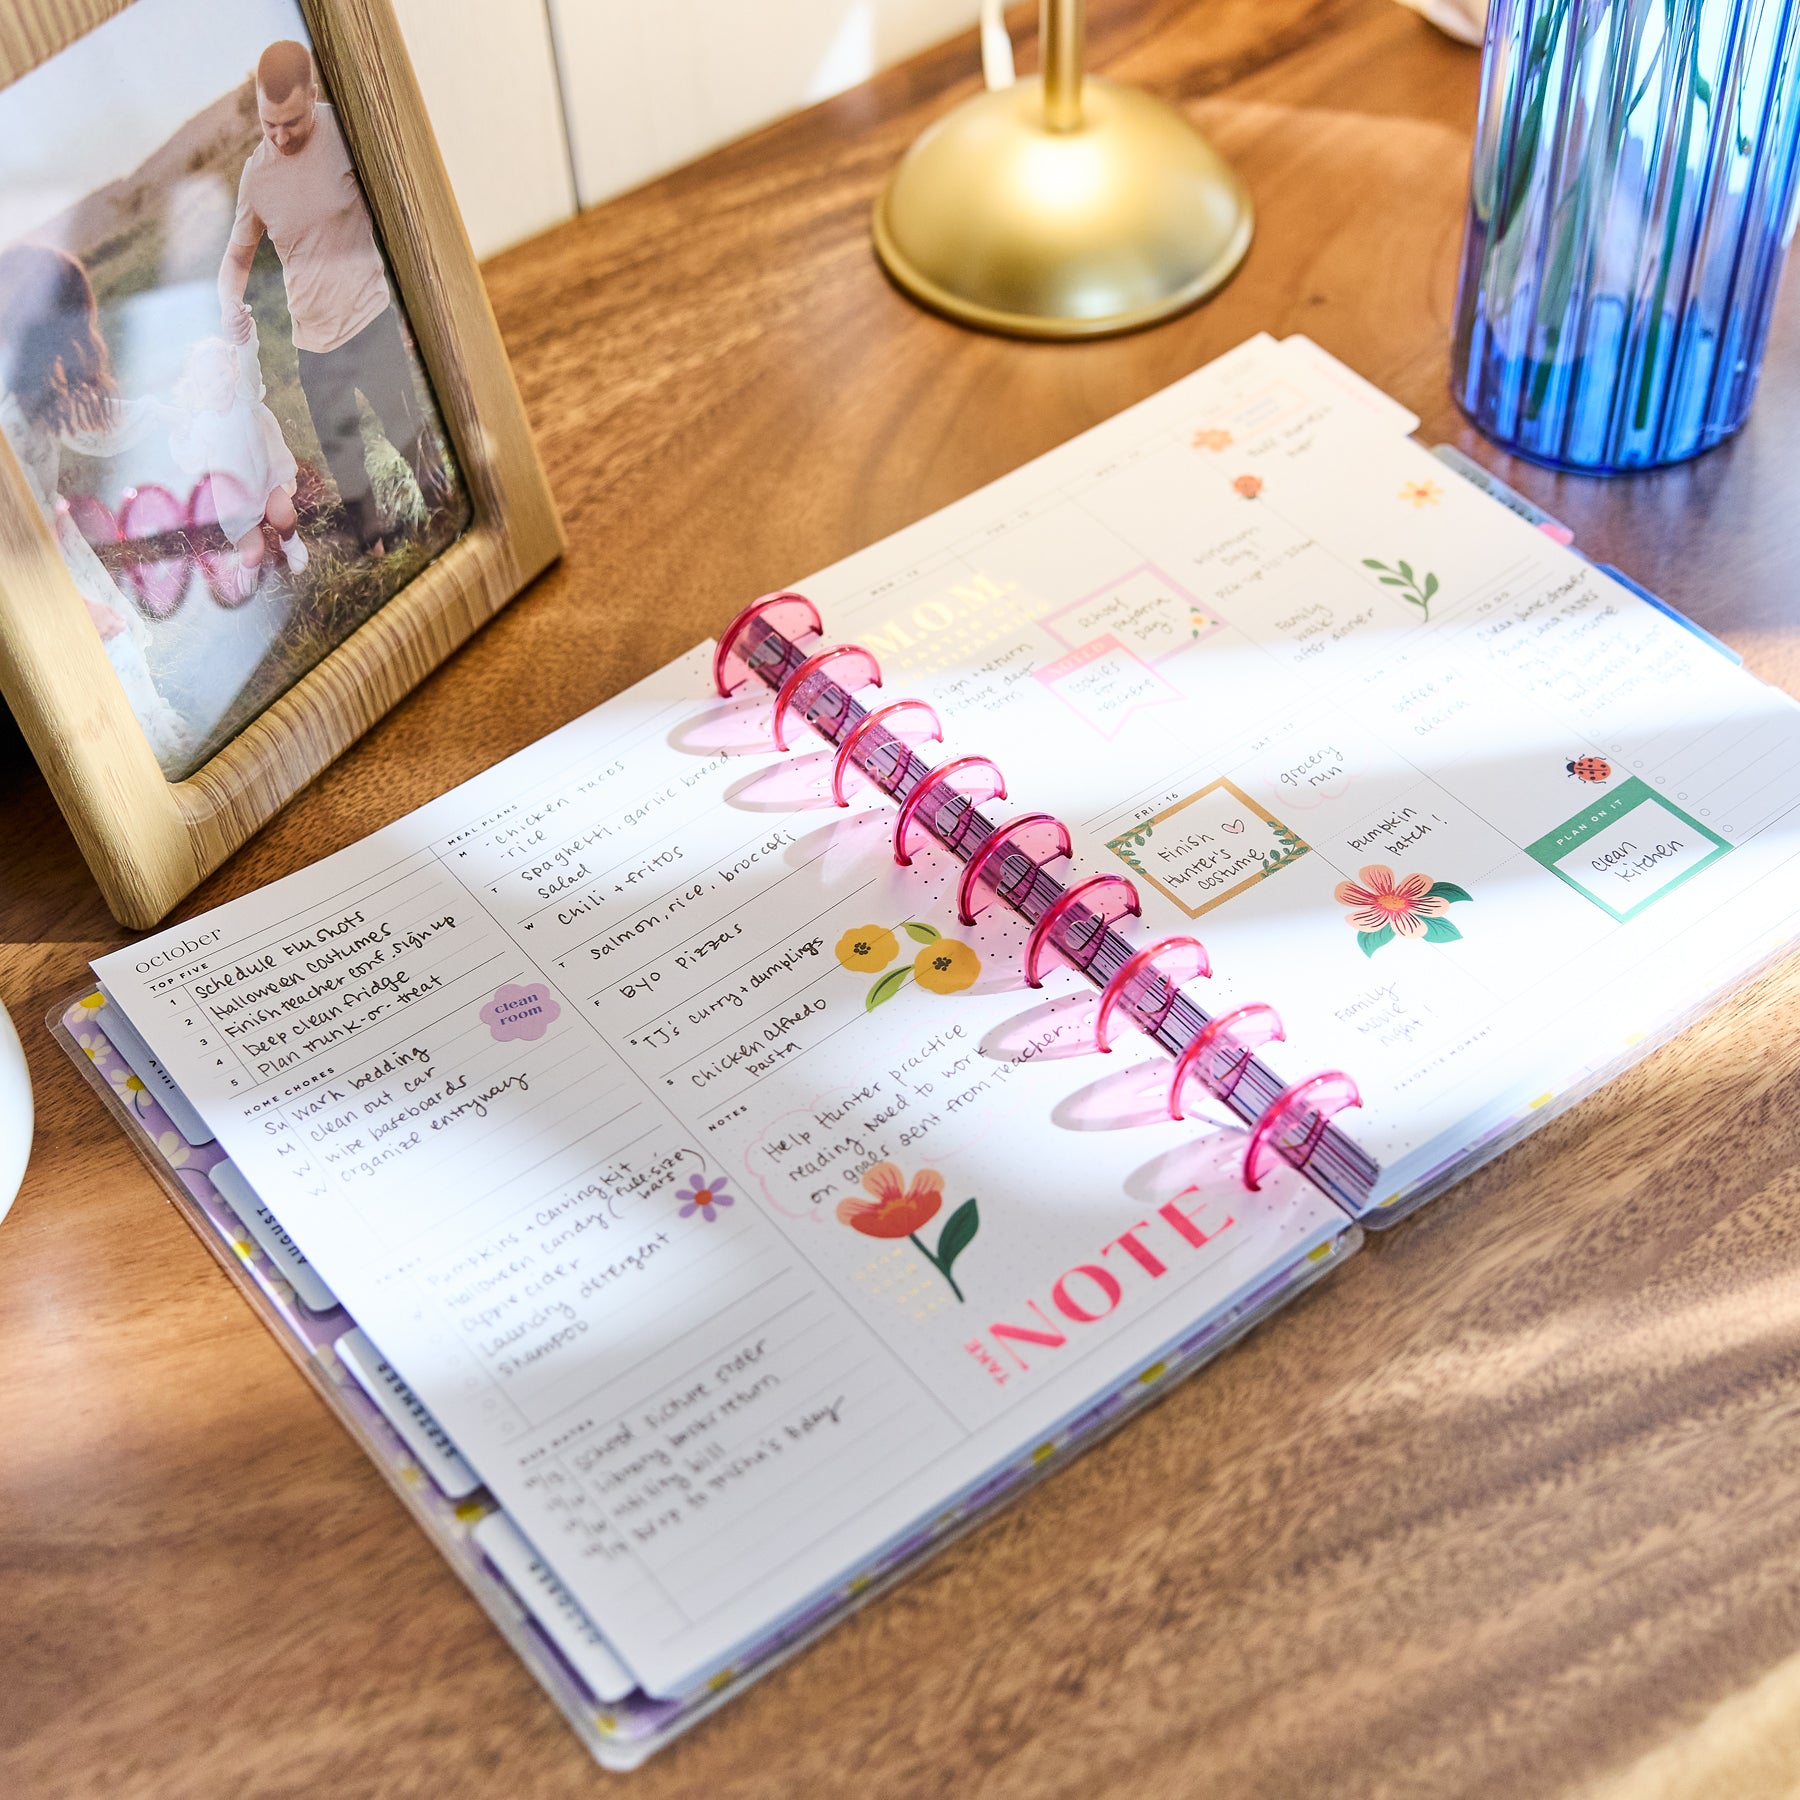 october
TOP FIVE
1 Schedule Flu Shots
2 Halloween costumes
3 Finish teacher conf. sign up
4 Deep clean fridge
5 Plan trunk-or-treat
clean
room
HOME CHORES
Su Wash bedding
M clean out car
W wipe baseboards
W organize entryway
Pumpkins + Carving kit
Halloween candy (full-size
bars)
apple cider
Laundry detergent
Shampoo
DUE DATES
School Picture order
Library books return
bill
bday
MEAL PLANS
M - chicken tacos
- rice
T spaghetti, garlic bread,
salad
W Chili + fritos
T Salmon, rice, broccoli
F BYO Pizzas
S TJ's curry + dumplings
S Chicken Alfredo
Pasta
NOTES
Help Hunter practice
reading. Need to work
on goals sent from Teacher...
TAKE
NOTE
M.O.M.
MASTER OF
MULTITASKING
Sign + return
picture day
form
School
pajama
day!
NOTED
cookies
for
teachers
minimum
day!
Family
walk
after dinner
FRI · 16
Finish
Hunter's
costume
SAT · 17
grocery
run
pumpkin
patch!
Family
Movie
night!
coffee w/
alaina
TO DO
PLAN ON IT
clean
kitchen
FAVORITE MOMENT
JULY
AUGUST
SEPTEMBER
OCTOBER